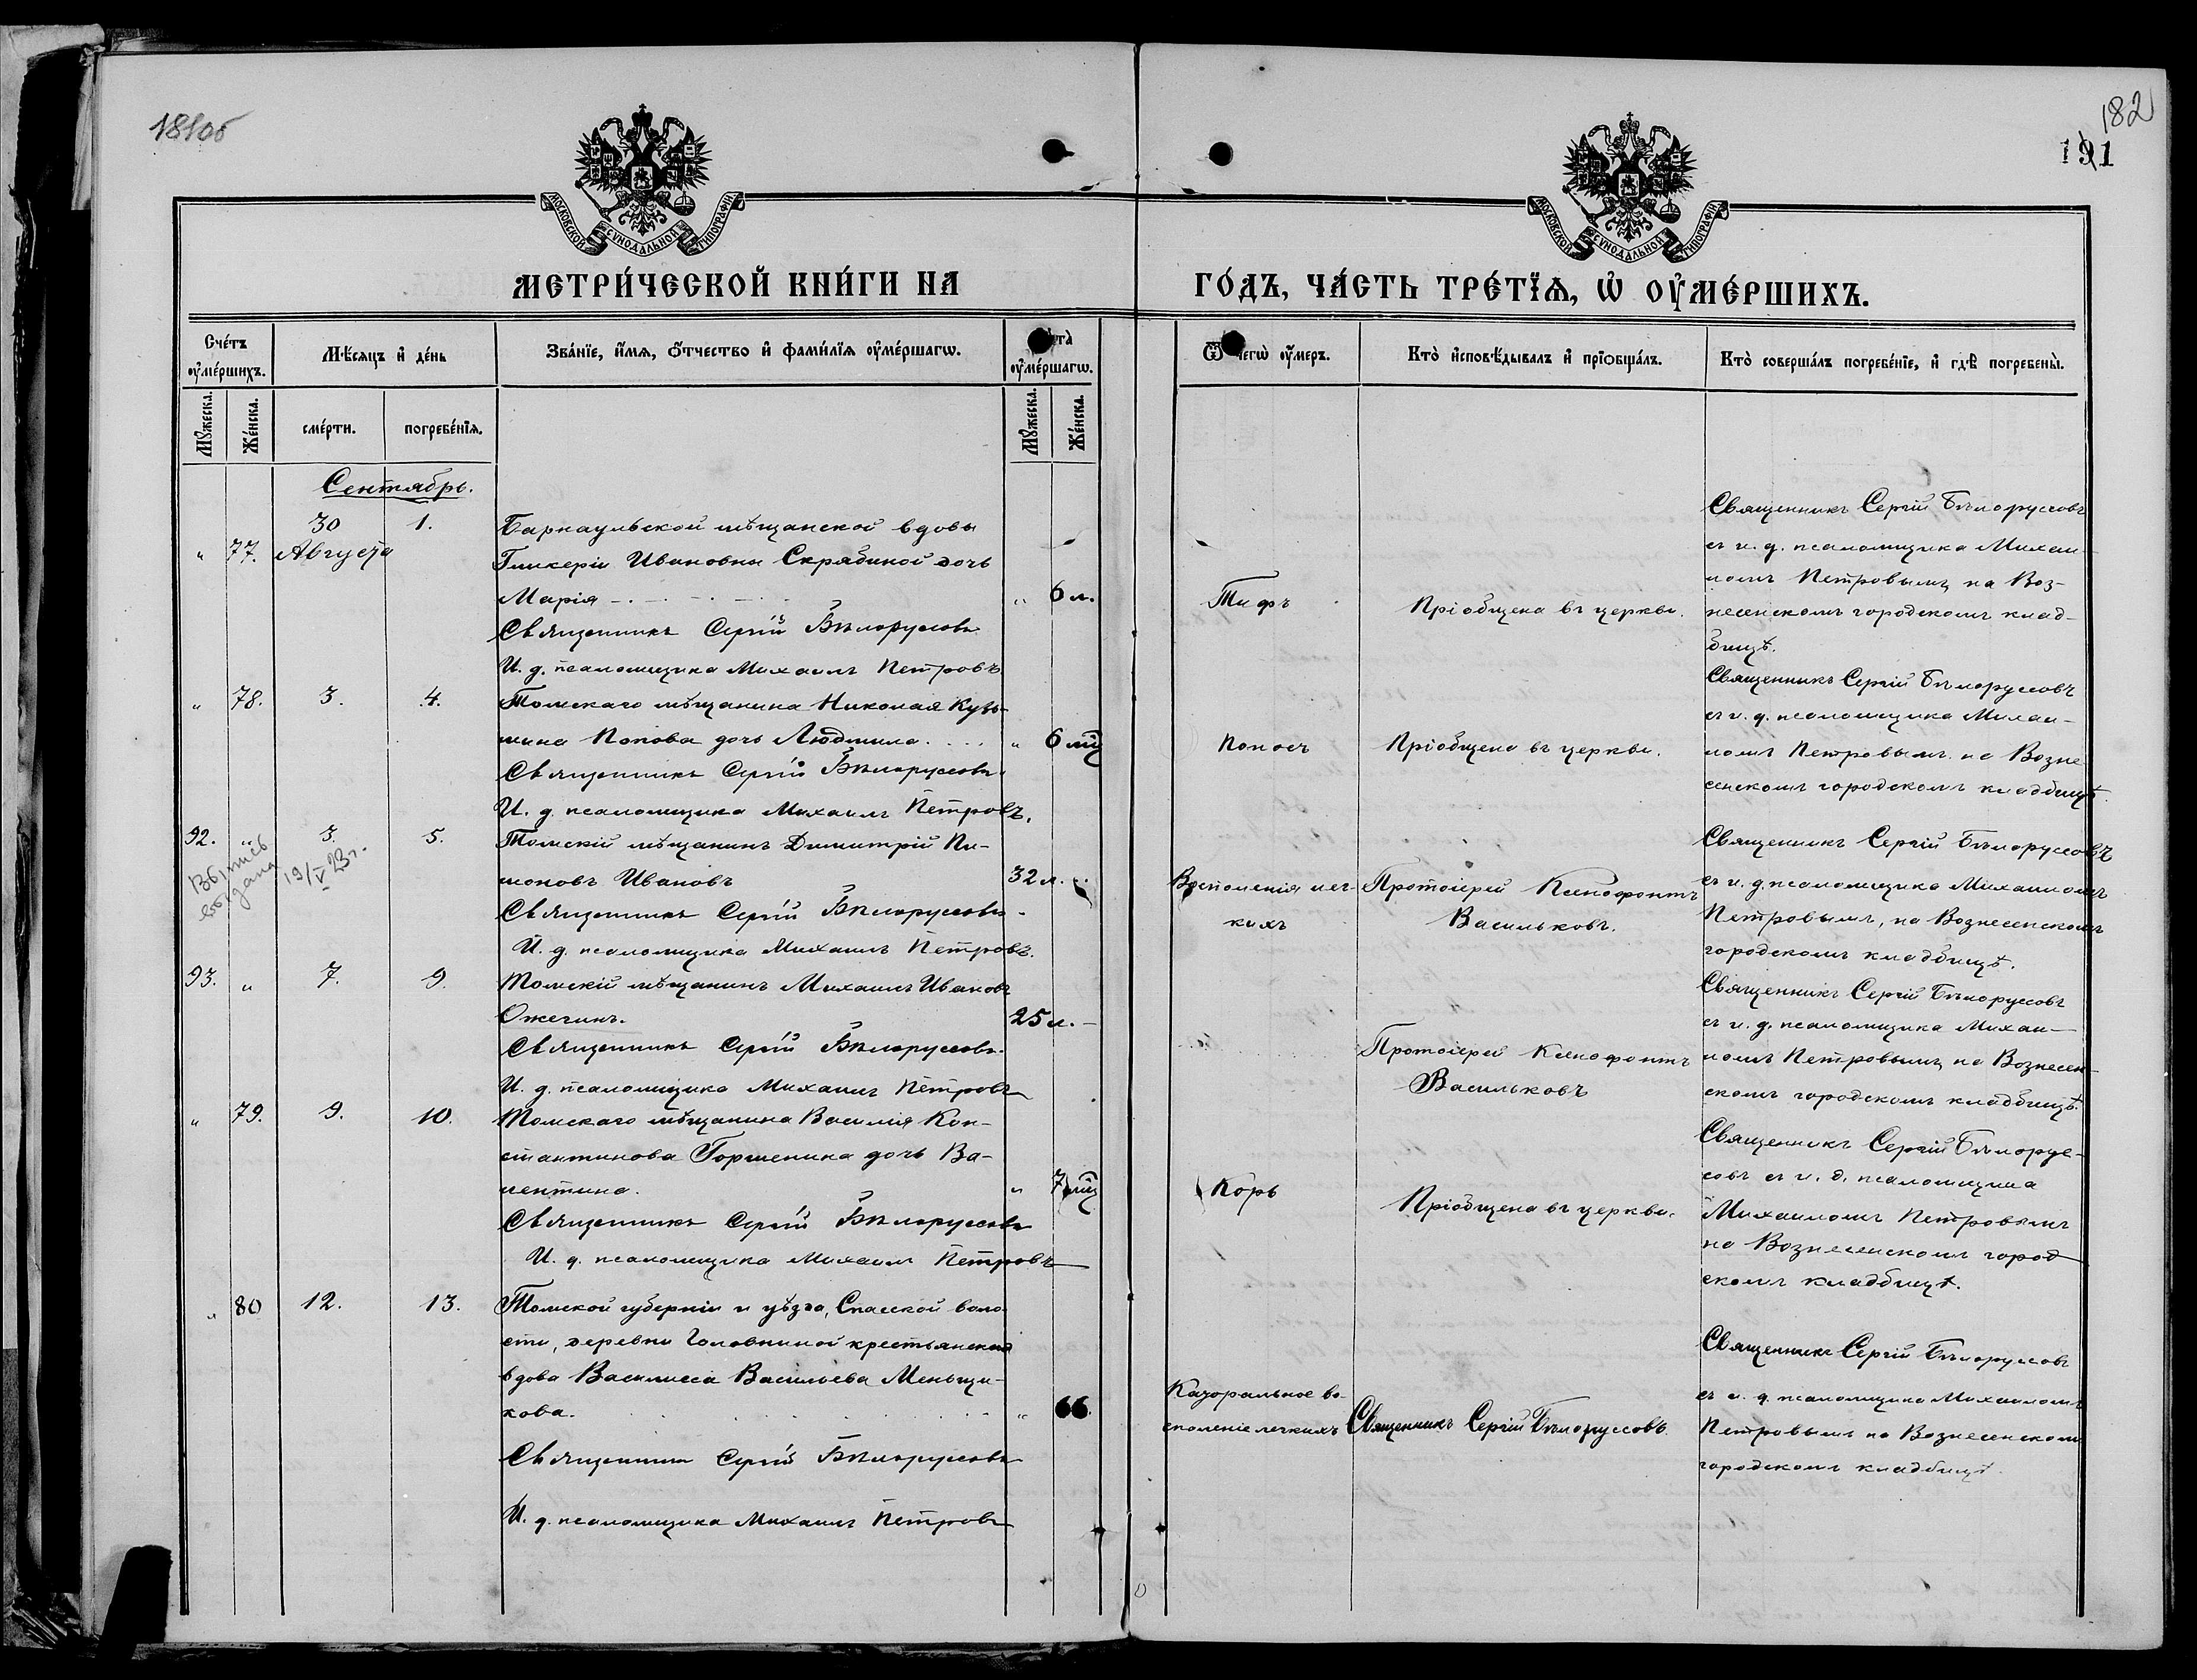 181об
182
191
МОСКОВСКОЙ СѴНОДАЛЬНОЙ ТИПОГРАФІИ
МОСКОВСКОЙ СѴНОДАЛЬНОЙ ТИПОГРАФІИ
МЕТРИ́ЧЕСКОЙ КНИ́ГИ НА
ГО́ДЪ, ЧА́СТЬ ТРЕ́ТІѦ, Ѡ ОУМЕ́РШИХЪ.
Сче́тъ оумершихъ.
Мѣ́сяцъ и де́нь
Зва́нїе, и҆́мя, о҆́тчество и҆ фами́лїя оуме́ршагѡ.
оуме́ршагѡ.
Ѿ чегѡ̀ оу҆́меръ.
Кто̀ и҆сповѣ́дывалъ и҆ прїѻбща́лъ.
Кто̀ соверша́лъ погребе́нїе, и҆ гдѣ̀ погребены̀.
Мꙋжеска.
Же́нска.
сме́рти.
погребе́нїя.
Мꙋжеска.
Же́нска.
Сентябрь.
„ 77. 30 Августа 1.
Барнаульской мѣщанской вдовы
Гликеріи Ивановны Скрябиной дочь
Марія „ 6 л.
Священникъ Сергій Бѣлоруссовъ
И. д. псаломщика Михаилъ Петровъ
Тифъ
Пріобщена въ церкви.
Священникъ Сергій Бѣлоруссовъ
съ и. д. псаломщика Михаи-
ломъ Петровымъ, на Воз-
несенскомъ городскомъ клад-
бищѣ.
„ 78. 3. 4.
Томскаго мѣщанина Николая Кузь-
мина Попова дочь Людмила. „ 6 мц
Священникъ Сергій Бѣлоруссовъ.
И. д. псаломщика Михаилъ Петровъ.
Поносъ
Пріобщена въ церкви.
Священникъ Сергій Бѣлоруссовъ
съ и. д. псаломщика Михаи-
ломъ Петровымъ на Возне
сенскомъ городскомъ кладбищѣ.
92. „ 3. 5.
Выпись выдана 19/V 23 г.
Томскій мѣщанинъ Димитрій Пи-
моновъ Ивановъ 32 л.
Священникъ Сергій Бѣлоруссовъ.
И. д. псаломщика Михаилъ Петровъ.
Воспаленія лег-
кихъ
Протоіерей Ксенофонтъ
Васильковъ.
Священникъ Сергій Бѣлоруссовъ
съ и. д. псаломщика Михаиломъ
Петровымъ, на Вознесенскомъ
городскомъ кладбищѣ.
93. „ 7. 9.
Томскій мѣщанинъ Михаилъ Ивановъ
Ожегинъ. 25 л. –
Священникъ Сергій Бѣлоруссовъ.
И. д. псаломщика Михаилъ Петровъ
Протоіерей Ксенофонтъ
Васильковъ
Священникъ Сергій Бѣлоруссовъ
съ и. д. псаломщика Михаи-
ломъ Петровымъ, на Вознесен-
скомъ городскомъ кладбищѣ.
„ 79. 9. 10.
Томскаго мѣщанина Василія Кон-
стантинова Горшенина дочь Ва-
лентина. „ 7 мц
Священникъ Сергій Бѣлоруссовъ
И. д. псаломщика Михаилъ Петровъ
Корь
Пріобщена въ церкви.
Священникъ Сергій Бѣлорус-
совъ съ и. д. псаломщика
Михаиломъ Петровымъ
на Вознесенскомъ город
скомъ кладбищѣ.
„ 80 12. 13.
Томской губерніи и уѣзда, Спасской воло-
сти, деревни Головниной крестьянская
вдова Василисса Васильева Меньщи-
кова. „ 66.
Священникъ Сергій Бѣлоруссовъ
И. д. псаломщика Михаилъ Петровъ
Каторальное во-
спаленіе легкихъ
Священникъ Сергій Бѣлоруссовъ.
Священникъ Сергій Бѣлоруссовъ
съ и. д. псаломщика Михаиломъ
Петровымъ на Вознесенскомъ
городскомъ кладбищѣ.